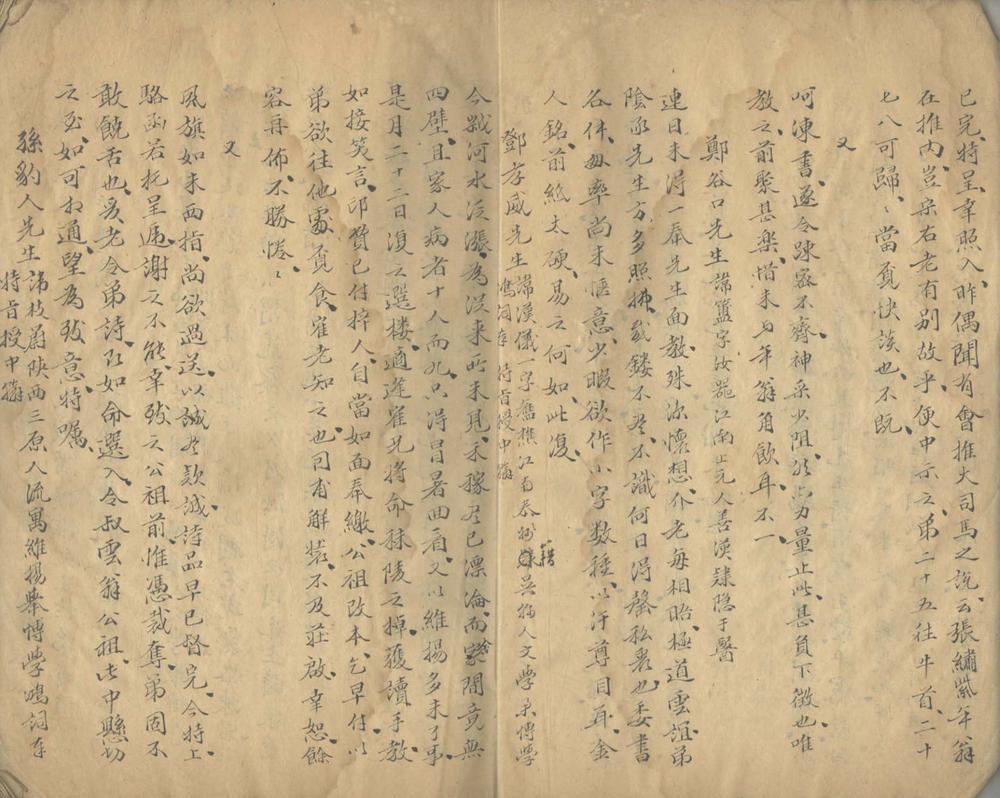 已完、特呈、幸照入、昨偶聞有會推大司馬之說、云張繡紫年翁
在推內、豈宗右老有别故乎、便中示之、弟二十五往牛首、二十
七八可歸、歸當覓快談也、不既、
又
呵凍書、遂令疎密不齊、神采少阻、於此力量止此、甚負下徵也、唯
教之、前聚甚楽、惜未与年翁角飲耳、不一、
鄭谷口先生 諱簠字汝器江南上元人善漢隸隐于醫
連日未得一奉先生面教、殊深懷想、介老每相晤、極道雲誼、弟
陰承先生方多照拂、感鏤不盡、不識何日得罄私衷也、委書
各件、毋率尚未愜意、少暇欲作小字数種、以汙尊目耳、金
人銘、前紙太硬、易之何如、此復、
鄧孝威先生 諱漢儀一字舊樵江南泰州籍吳縣人文學举博學
鴻詞 特旨授中翰
今歲河水泛漲、為從来所未見、禾稼尽已漂淪、而家間竟無
四壁、且家人病者十人而九、只得冒暑回看、又以維揚多未了事、
是月二十二日復之選樓、適逢崔兄將命秣陵之掉、獲讀手教、
如接笑言、卽贊已付梓人、自當如面奉繳、公祖改本、乞早付、以
弟欲往他處覓食、崔老知之也、司甫解裝、不及莊啟、幸恕、餘
容再佈、不勝惓惓、
又
風旗如未西指、尚欲過送、以誠盡款誠、詩品早已督完、今特上
駱函、若托呈馬謝之不能、幸致之公祖前、惟憑裁奪、弟固不
敢饒舌也、爰老令弟詩、已如命選入、令叔雲翁公祖、此中懸切
之至、如可相通、望為致意、特囑、
孫豹人先生 諱枝蔚陝西三原人流寓維揚舉博學鴻詞奉
特旨授中翰